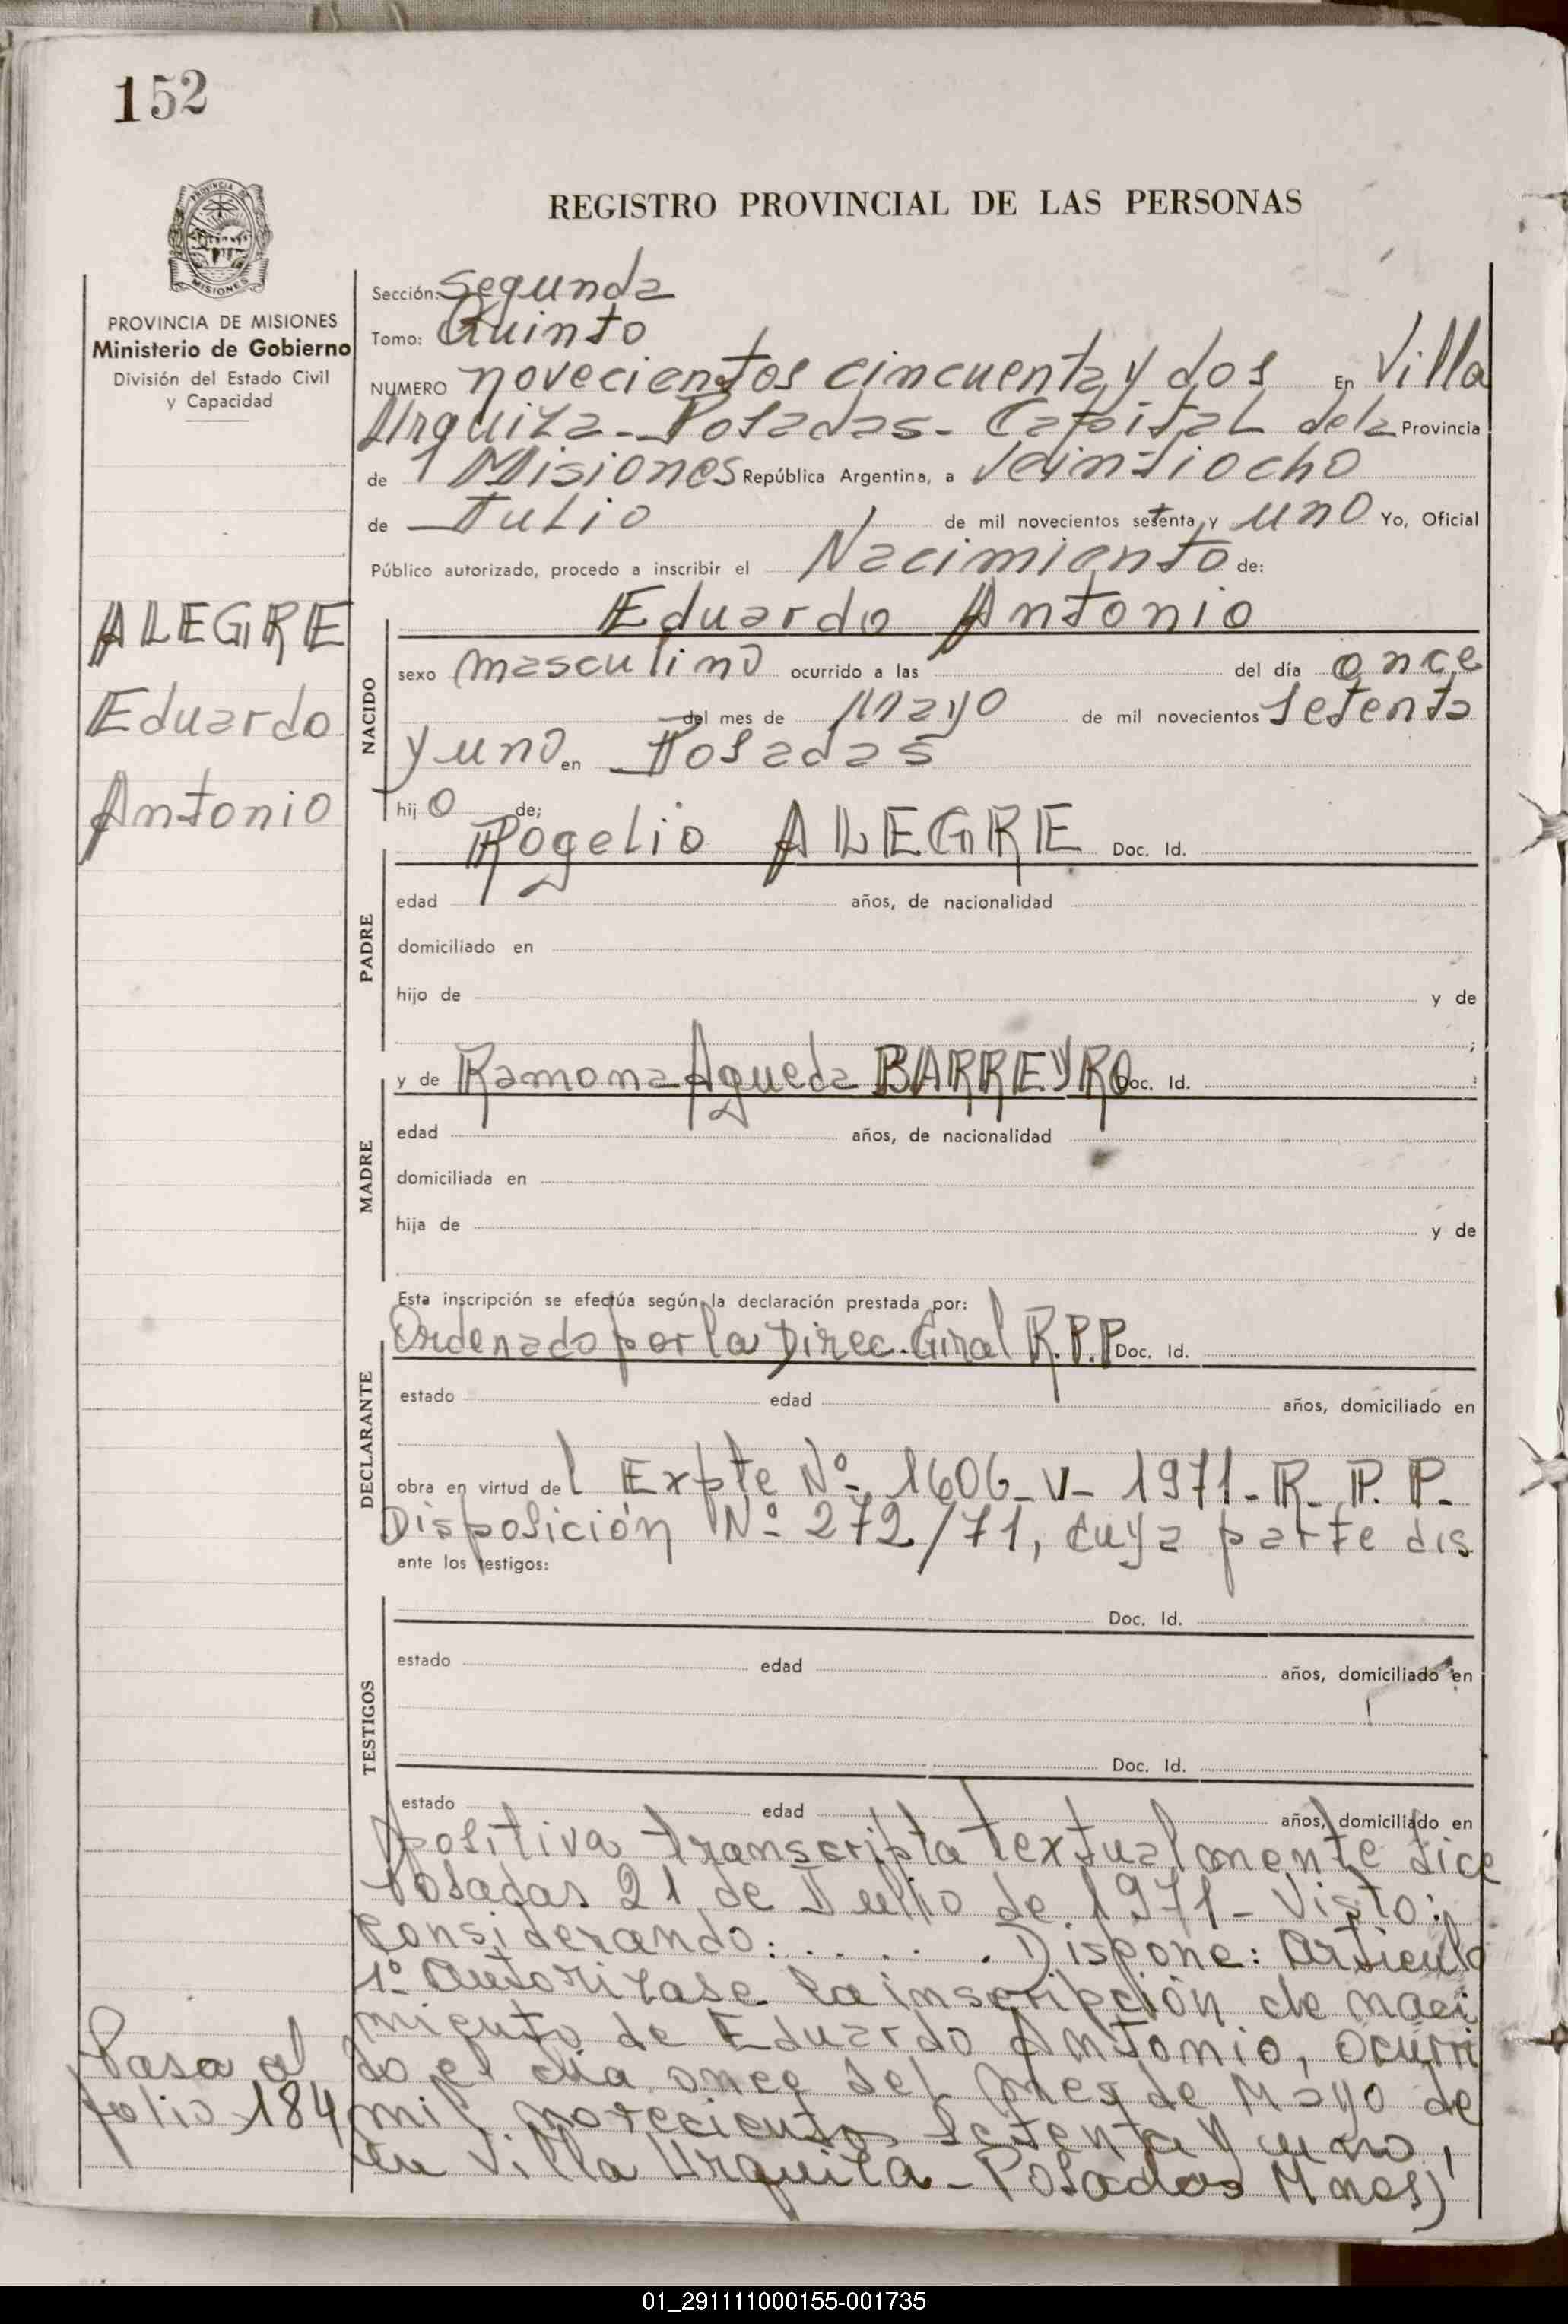 152
PROVINCIA DE MISIONES
REGISTRO PROVINCIAL DE LAS PERSONAS
PROVINCIA DE MISIONES
Ministerio de Gobierno
División del Estado Civil
y Capacidad
Sección: Segunda
Tomo: Quinto
NUMERO novecientos cincuenta y dos En Villa
Urquiza - Posadas - Capital de la Provincia
de Misiones República Argentina, a Veintiocho
de Julio de mil novecientos setenta y uno Yo, Oficial
Público autorizado, procedo a inscribir el Nacimiento de:
ALEGRE
Eduardo
Antonio
NACIDO
Eduardo Antonio
sexo masculino ocurrido a las del día once
del mes de Mayo de mil novecientos setenta
y uno en Posadas
hijo de;
PADRE
Rogelio ALEGRE Doc. Id.
edad años, de nacionalidad
domiciliado en
hijo de y de
;
MADRE
y de Ramona Agueda BARREYRO Doc. Id.
edad años, de nacionalidad
domiciliada en
hija de y de
Esta inscripción se efectúa según la declaración prestada por:
DECLARANTE
Ordenado por la Direc. Gral R.P.P Doc. Id.
estado edad años, domiciliado en
obra en virtud del Expte Nº 1606-V-1971-R.P.P.
Disposición Nº 272/71, cuya parte dis
ante los testigos:
TESTIGOS
Doc. Id.
estado edad años, domiciliado en
Doc. Id.
estado edad años, domiciliado en
positiva transcripta textualmente dice
Posadas 21 de Julio de 1971 - Visto:
considerando: . . . . . Dispone: Articulo
1º Autorizase la inscripción de naci
miento de Eduardo Antonio, ocurri
do el día once del mes de Mayo de
mil novecientos setenta y uno,
en Villa Urquiza - Posadas Mnes)
Pasa al
folio 184
01_291111000155-001735